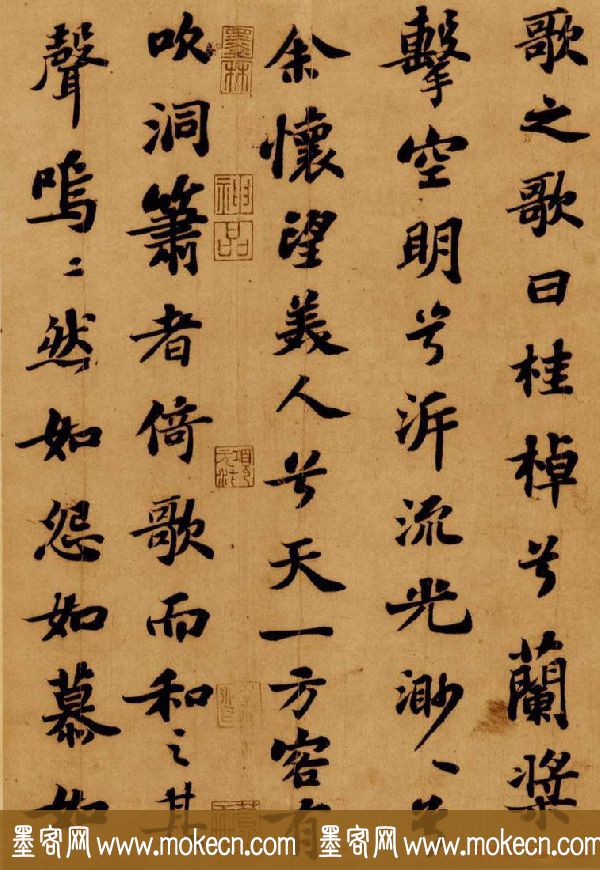 歌之歌曰桂棹兮蘭槳
擊空明兮泝流光渺〻兮
余懷望美人兮天一方客有
吹洞簫者倚歌而和之其
聲嗚〻然如怨如慕如
墨林
神品
墨客网 www.mokecn.com 墨客网 www.mokecn.com